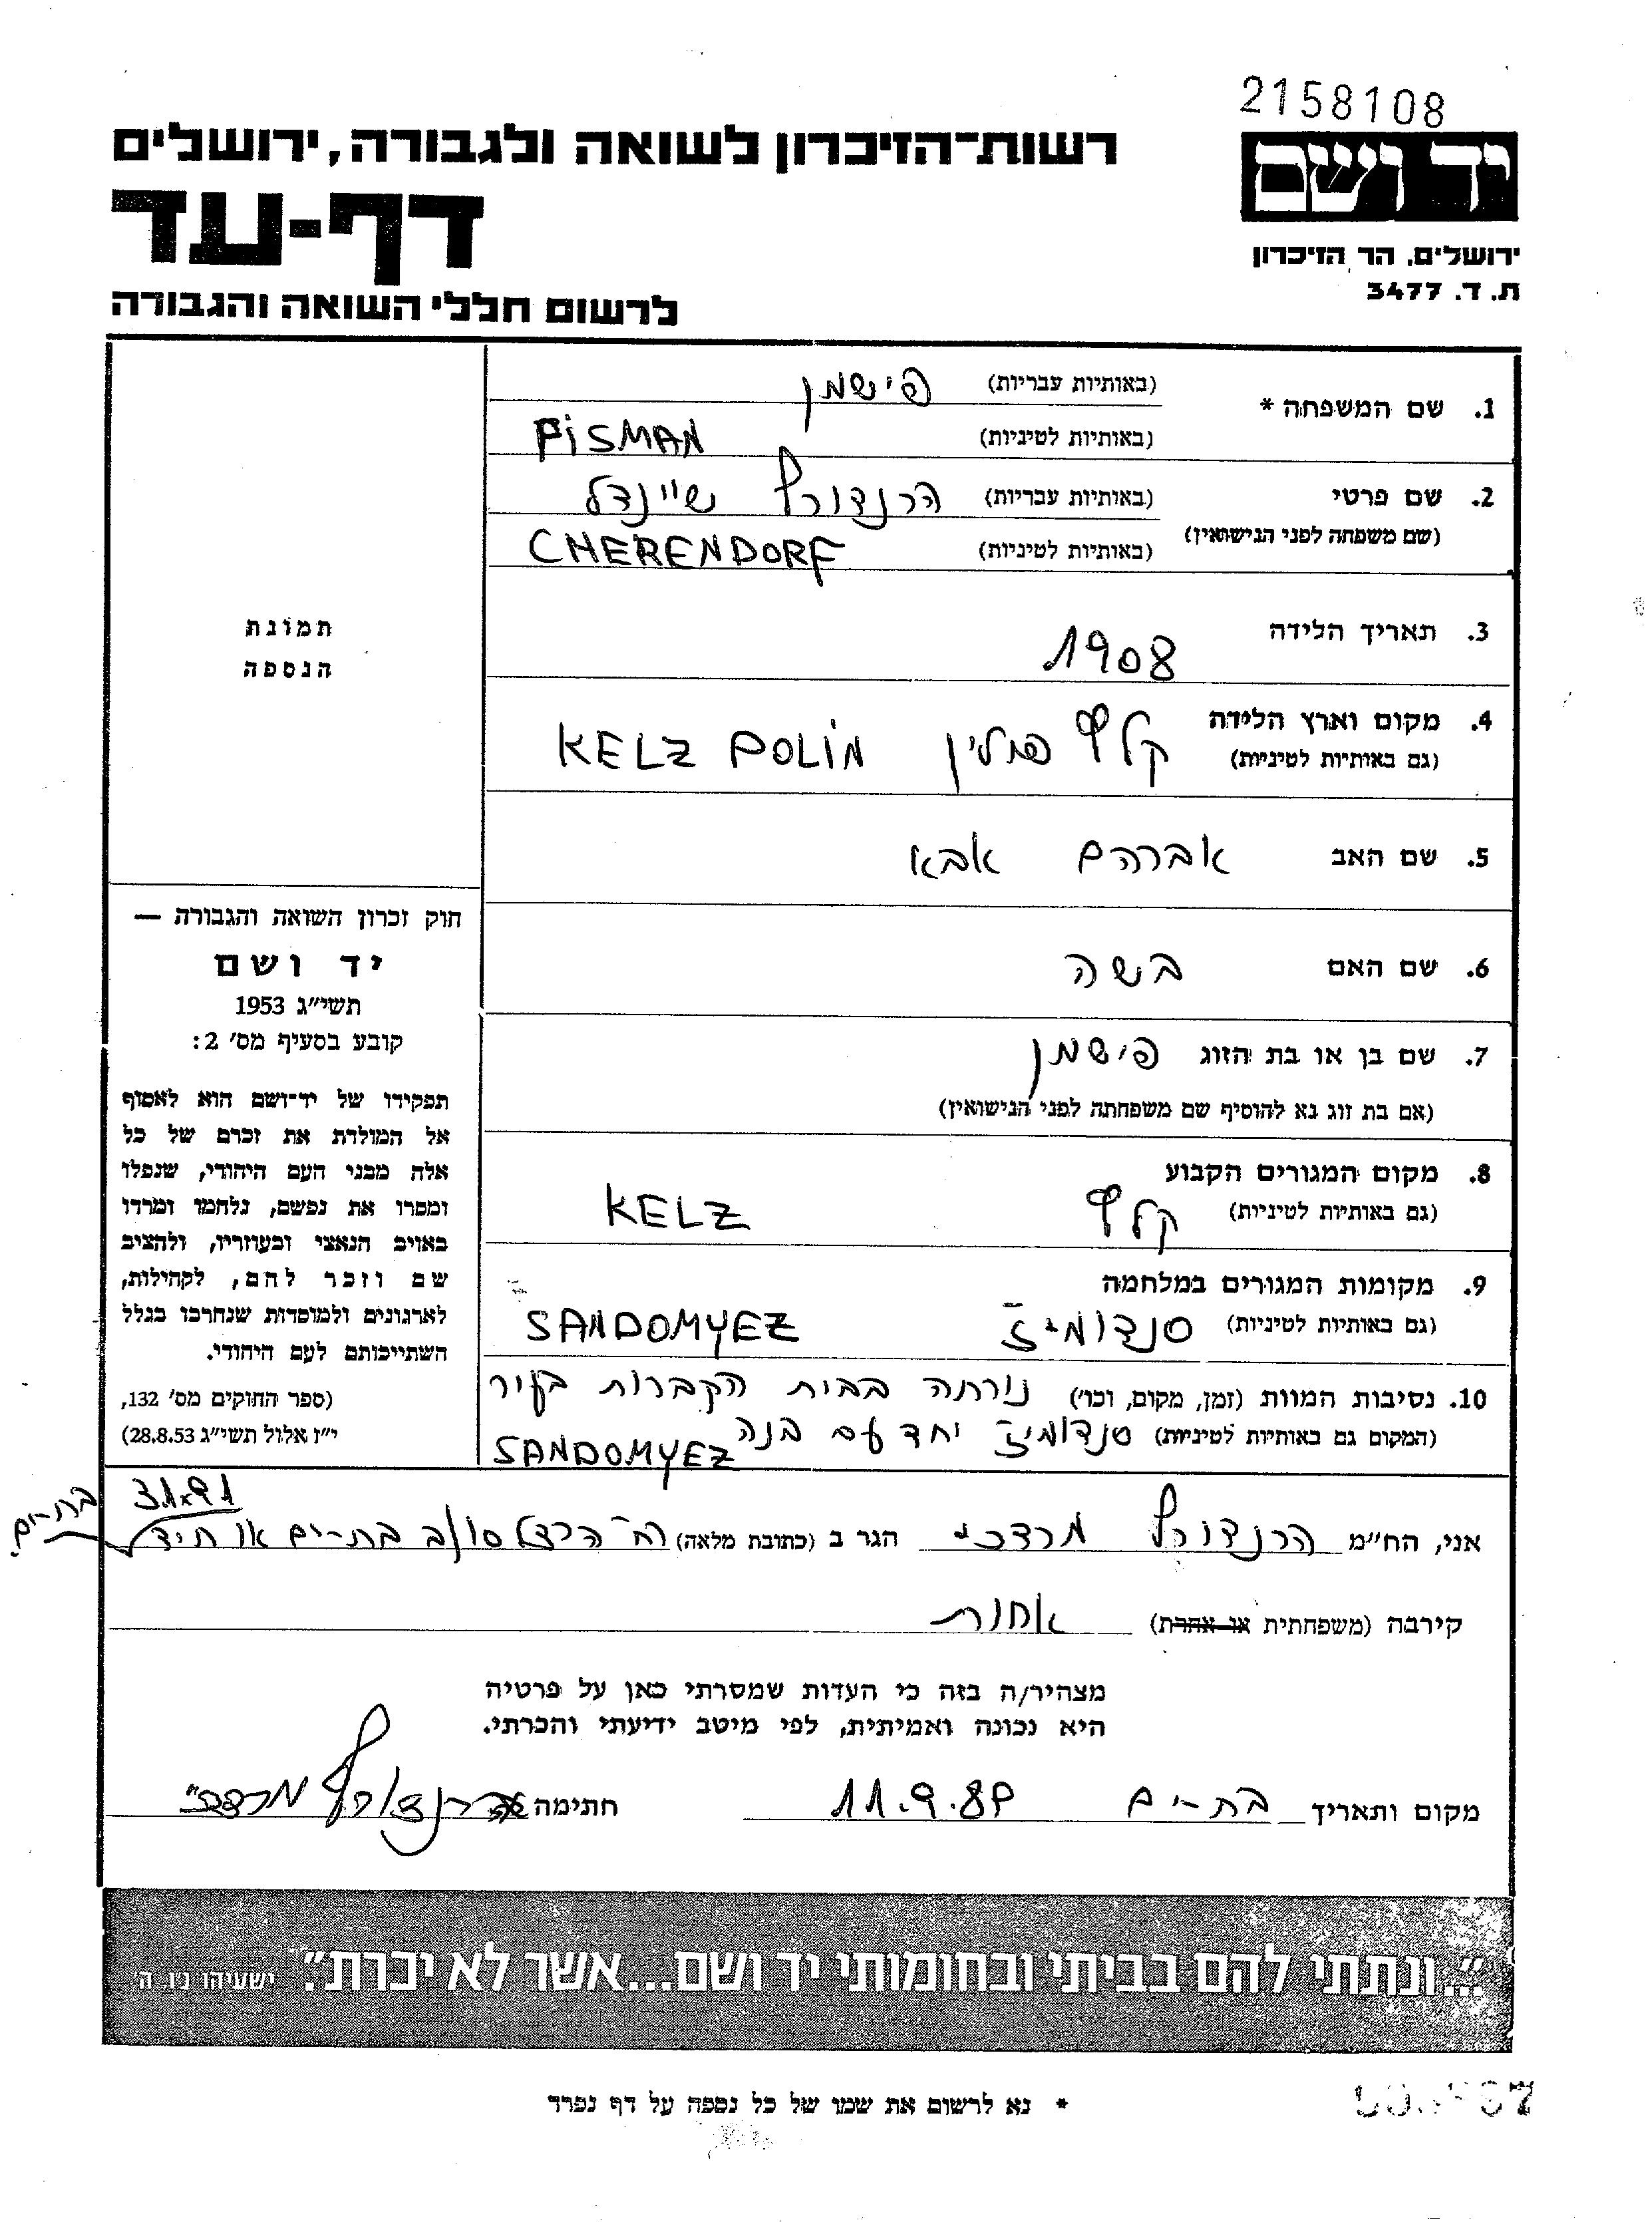 2158108
רשות־הזיכרון לשואה ולגבורה, ירושלים
יד ושם
דף-עד
ירושלים, הר הזיכרון
ת. ד. 3477
לרשום חללי השואה והגבורה
1. שם המשפחה *
(באותיות עבריות) פישמן
(באותיות לטיניות) FISMAN
2. שם פרטי (באותיות עבריות) הרנדורף שיינדל
(שם משפחה לפני הנישואין) (באותיות לטיניות) CHERENDORF
3. תאריך הלידה 1908
4. מקום וארץ הלידה
(גם באותיות לטיניות) קלץ פולין KELZ POLIN
5. שם האב אברהם אבא
6. שם האם בשה
7. שם בן או בת הזוג פישמן
(אם בת זוג נא להוסיף שם משפחתה לפני הנישואין)
8. מקום המגורים הקבוע
(גם באותיות לטיניות) קלץ KELZ
9. מקומות המגורים במלחמה
(גם באותיות לטיניות) סנדומיז SANDOMYEZ
10. נסיבות המוות (זמן, מקום, וכו') נורתה בבית הקברות בעיר
(המקום גם באותיות לטיניות) סנדומיז יחד עם בנה SANDOMYEZ
תמונת
הנספה
חוק זכרון השואה והגבורה —
יד ושם
תשי״ג 1953
קובע בסעיף מס׳ 2:
תפקידו של יד־ושם הוא לאסוף
אל המולדת את זכרם של כל
אלה מבני העם היהודי, שנפלו
ומסרו את נפשם, נלחמו ומרדו
באויב הנאצי ובעוזריו, ולהציב
שם וזכר להם, לקהילות,
לארגונים ולמוסדות שנחרבו בגלל
השתייכותם לעם היהודי.
(ספר החוקים מס׳ 132,
י״ז אלול תשי״ג 28.8.53)
אני, הח״מ הרנדורף מרדכי הגר ב (כתובת מלאה) רח הרצל בת-ים
בת-ים
קירבה (משפחתית או אחרת) אחות
מצהיר/ה בזה כי העדות שמסרתי כאן על פרטיה
היא נכונה ואמיתית, לפי מיטב ידיעתי והכרתי.
מקום ותאריך בת-ים 11.9.89 חתימה הרנדורף מרדכי
״...ונתתי להם בביתי ובחומותי יד ושם...אשר לא יכרת״. ישעיהו נ״ו, ה׳
* נא לרשום את שמו של כל נספה על דף נפרד